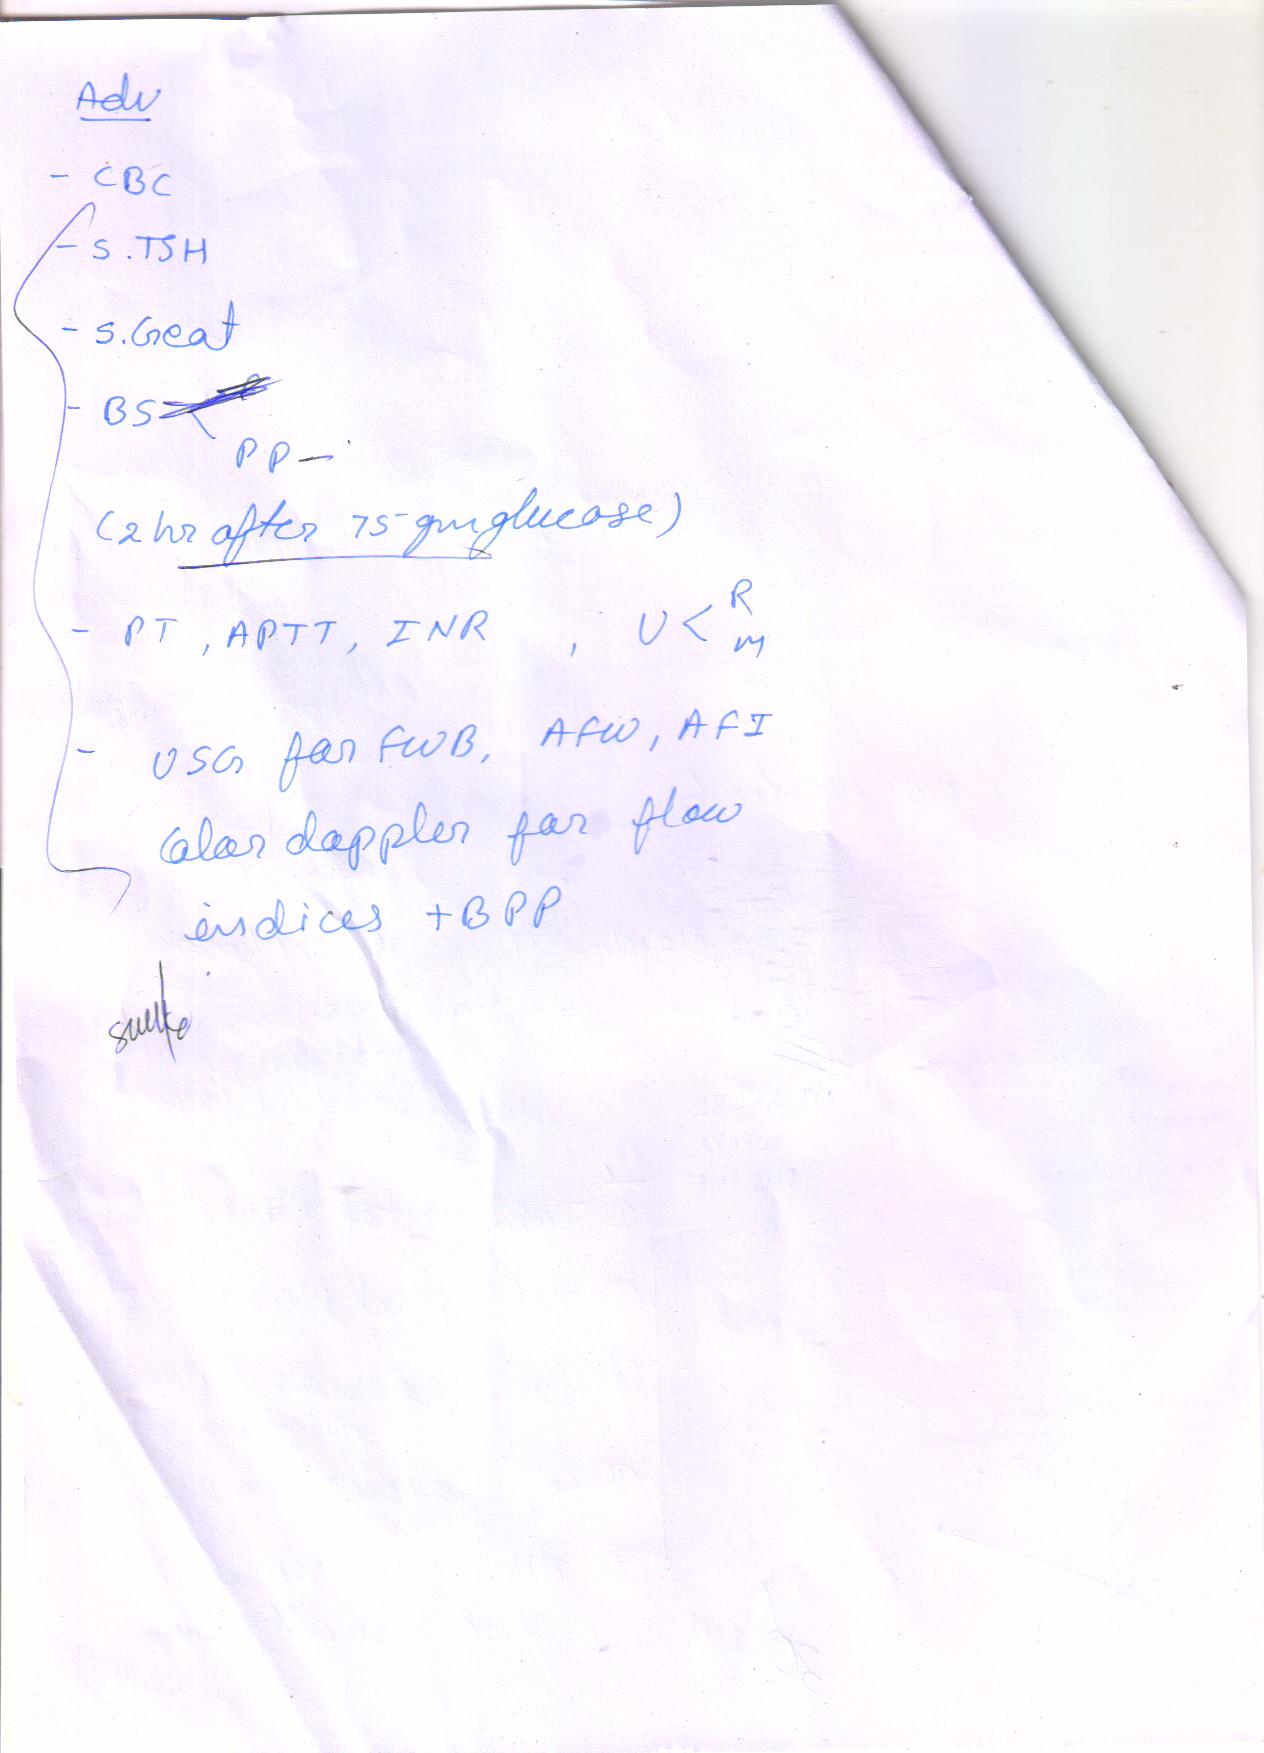 Adv
- CBC
- S.TSH
- S.Creat
- BS <
PP -
(2 hr after 75 gm glucose)
- PT, APTT, INR , U < R
M
- USG for FWB, AFW, AFI
Color doppler for flow
indices + BPP